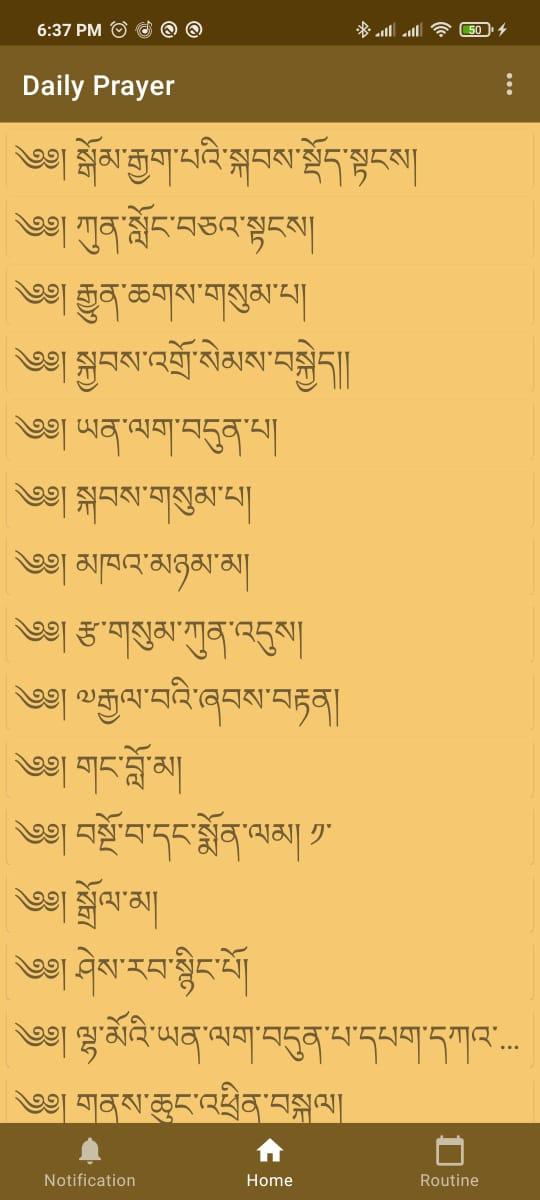 6:37 PM
50
Daily Prayer
༄༅། སྒོམ་རྒྱག་པའི་སྐབས་སྡོད་སྟངས།
༄༅། ཀུན་སློང་བཅའ་སྟངས།
༄༅། རྒྱུན་ཆགས་གསུམ་པ།
༄༅། སྐྱབས་འགྲོ་སེམས་བསྐྱེད།།
༄༅། ཡན་ལག་བདུན་པ།
༄༅། སྐབས་གསུམ་པ།
༄༅། མཁའ་མཉམ་མ།
༄༅། རྩ་གསུམ་ཀུན་འདུས།
༄༅། ༧རྒྱལ་བའི་ཞབས་བརྟན།
༄༅། གང་བློ་མ།
༄༅། བསྔོ་བ་དང་སྨོན་ལམ། ༡་
༄༅། སྒྲོལ་མ།
༄༅། ཤེས་རབ་སྙིང་པོ།
༄༅། ལྷ་མོའི་ཡན་ལག་བདུན་པ་དཔག་དཀའ་...
༄༅། གནས་ཆུང་འཕྲིན་བསྐུལ།
Notification
Home
Routine